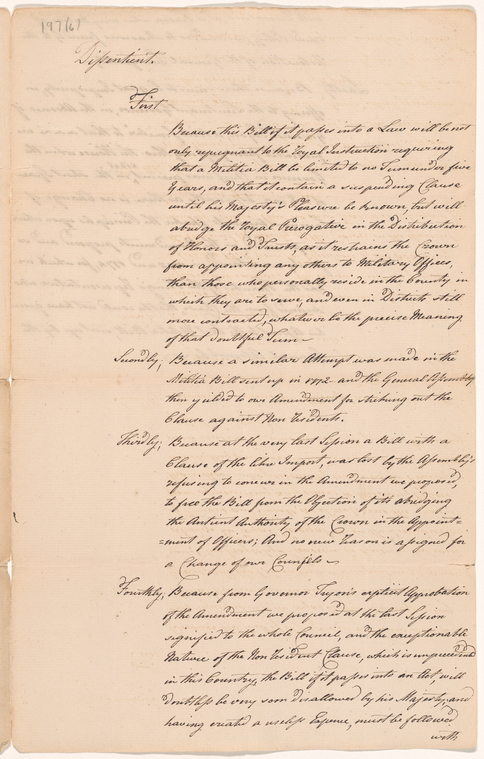 197(6)
Dissentient.
First
Because this Bill if it passes into a Law will be not
only repugnant to the Royal Instruction requiring
that a Militia Bill be limited to no Term under five
Years, and that it contain a suspending Clause
until his Majesty's Pleasure be known, but will
abridge the Royal Prerogative in the Distribution
of Honors and Trusts, as it restrains the Crown
from appointing any others to Military Offices,
than those who personally reside in the County in
which they are to serve, and even in Districts still
more contracted, whatever be the precise Meaning
of that doubtful Term ~
Secondly; Because a similar Attempt was made in the
Militia Bill sent up in 1772 and the General Assembly
then yielded to our Amendment for striking out the
Clause against Non Residents.
Thirdly; Because at the very last Session a Bill with a
Clause of the like Import, was lost by the Assembly's
refusing to concur in the Amendment we proposed,
to free the Bill from the Objection of its abridging
the Antient Authority of the Crown in the Appoint=
=ment of Officers; And no new Reason is assigned for
a Change of our Counsels ~
Fourthly; Because from Governor Tryon's explicit Approbation
of the Amendment we proposed at the last Session
signified to the whole Council, and the exceptionable
Nature of the Non Resident Clause, which is unprecedented
in this Country, the Bill if it passes into an Act, will
doubtless be very soon disallowed by his Majesty, and
having created a useless Expence, must be followed
with